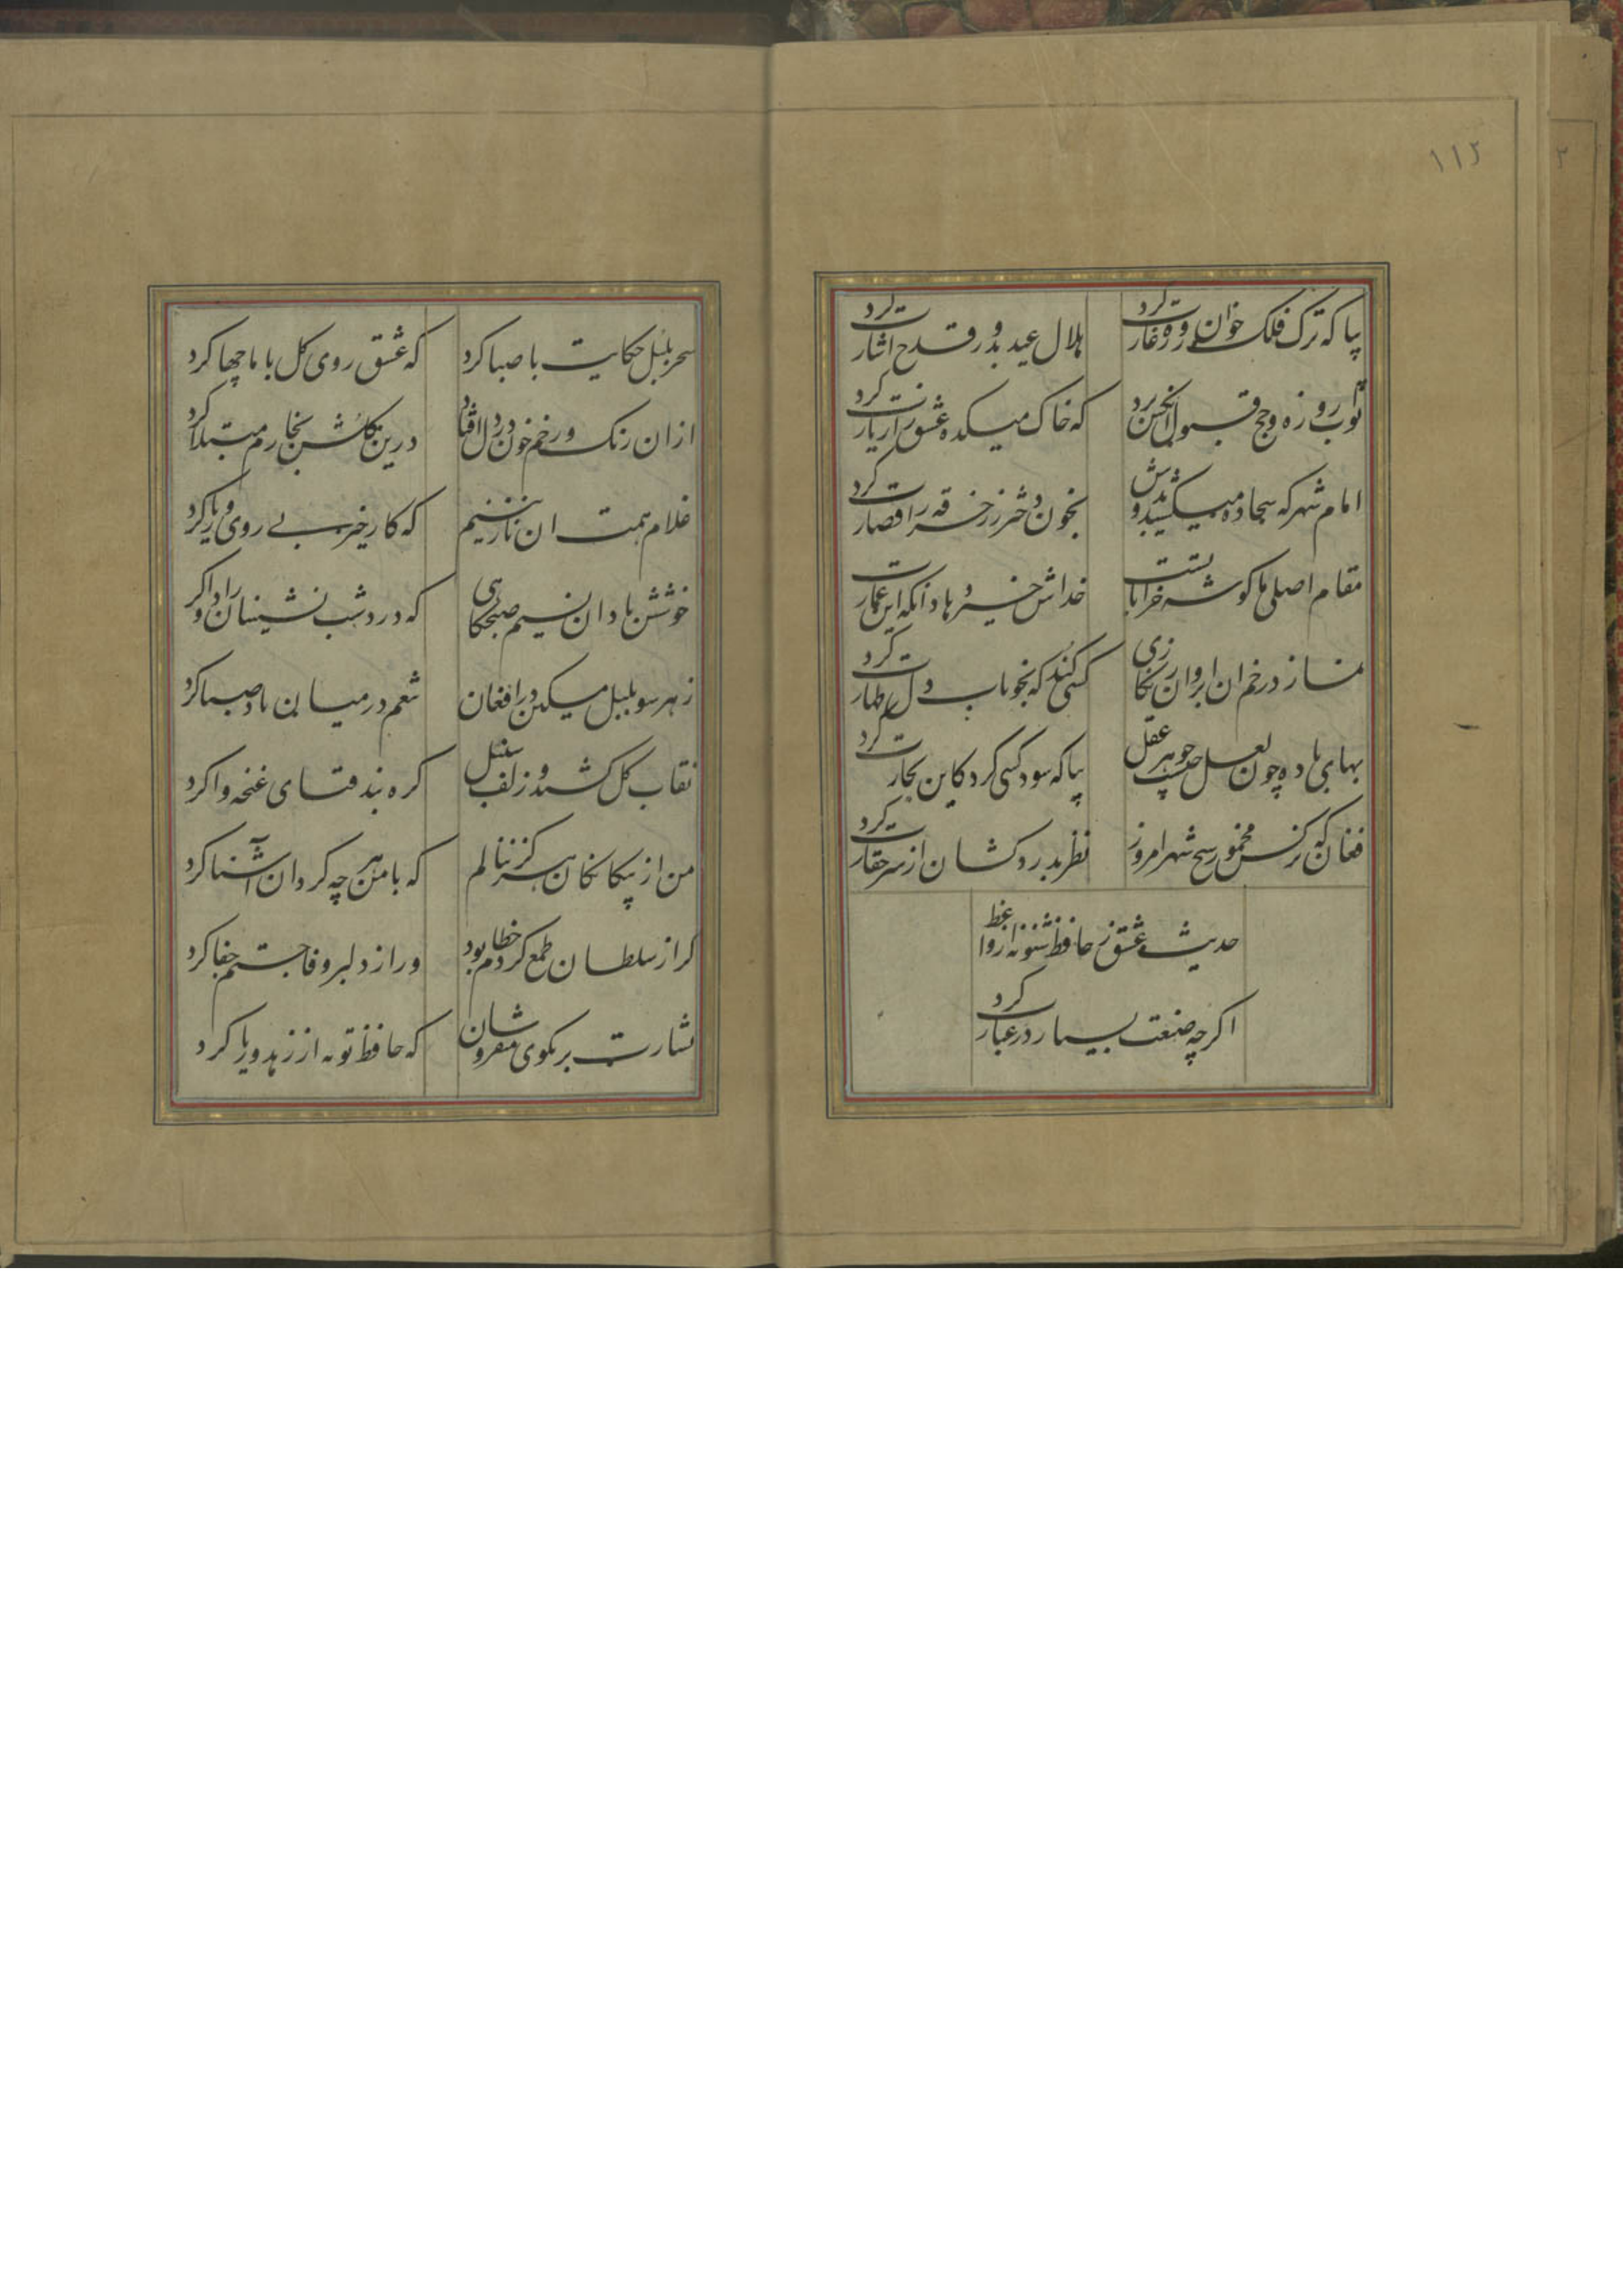 ١١٢
بیا که ترک فلک خوان روزه غارت کرد
هلال عید بدور قدح اشارت کرد
ثواب روزه و حج قبول انکس برد
که خاک میکده عشق را زیارت کرد
امام شهر که سجاده میکشید بدوش
بخون دختر رز خرقه را قصارت کرد
مقام اصلی ما کوشه خراباتست
خداش خیر دهاد انکه این عمارت
نماز در خم ان ابروان
کسی کند که بخوناب دل طهارت کرد
بهای باده چون لعل چیست جوهر عقل
بیا که سود کسی کرد کاین تجارت کرد
فغان که نرکس مخمور شیخ شهر امروز
نظر بدردکشان از سر حقارت کرد
حدیث عشق ز حافظ شنو نه از واعظ
اکرچه صنعت بسیار در عبارت کرد
سحر بلبل حکایت با صبا کرد
که عشق روی کل با ما چها کرد
ازان رنک و رخم خون در دل افتاد
درین کلشن بخارم مبتلا کرد
غلام همت ان نازنینم
که کار خیر بے روی و ریا کرد
خوشش باد ان نسیم صبحکاهی
که درد شب نشینان را دوا کرد
ز هر سو بلبل میسکین در افغان
تنعم در میان باد صبا کرد
نقاب کل کشید و زلف سنبل
کره بند قبای غنچه وا کرد
من از بیکانکان هرکز ننالم
که با من هر چه کرد ان آشنا کرد
کر از سلطان طمع کردم خطا بود
ور از دلبر وفا جستم جفا کرد
بشارت بر بکوی میفروشان
که حافظ توبه از زهد و ریا کرد